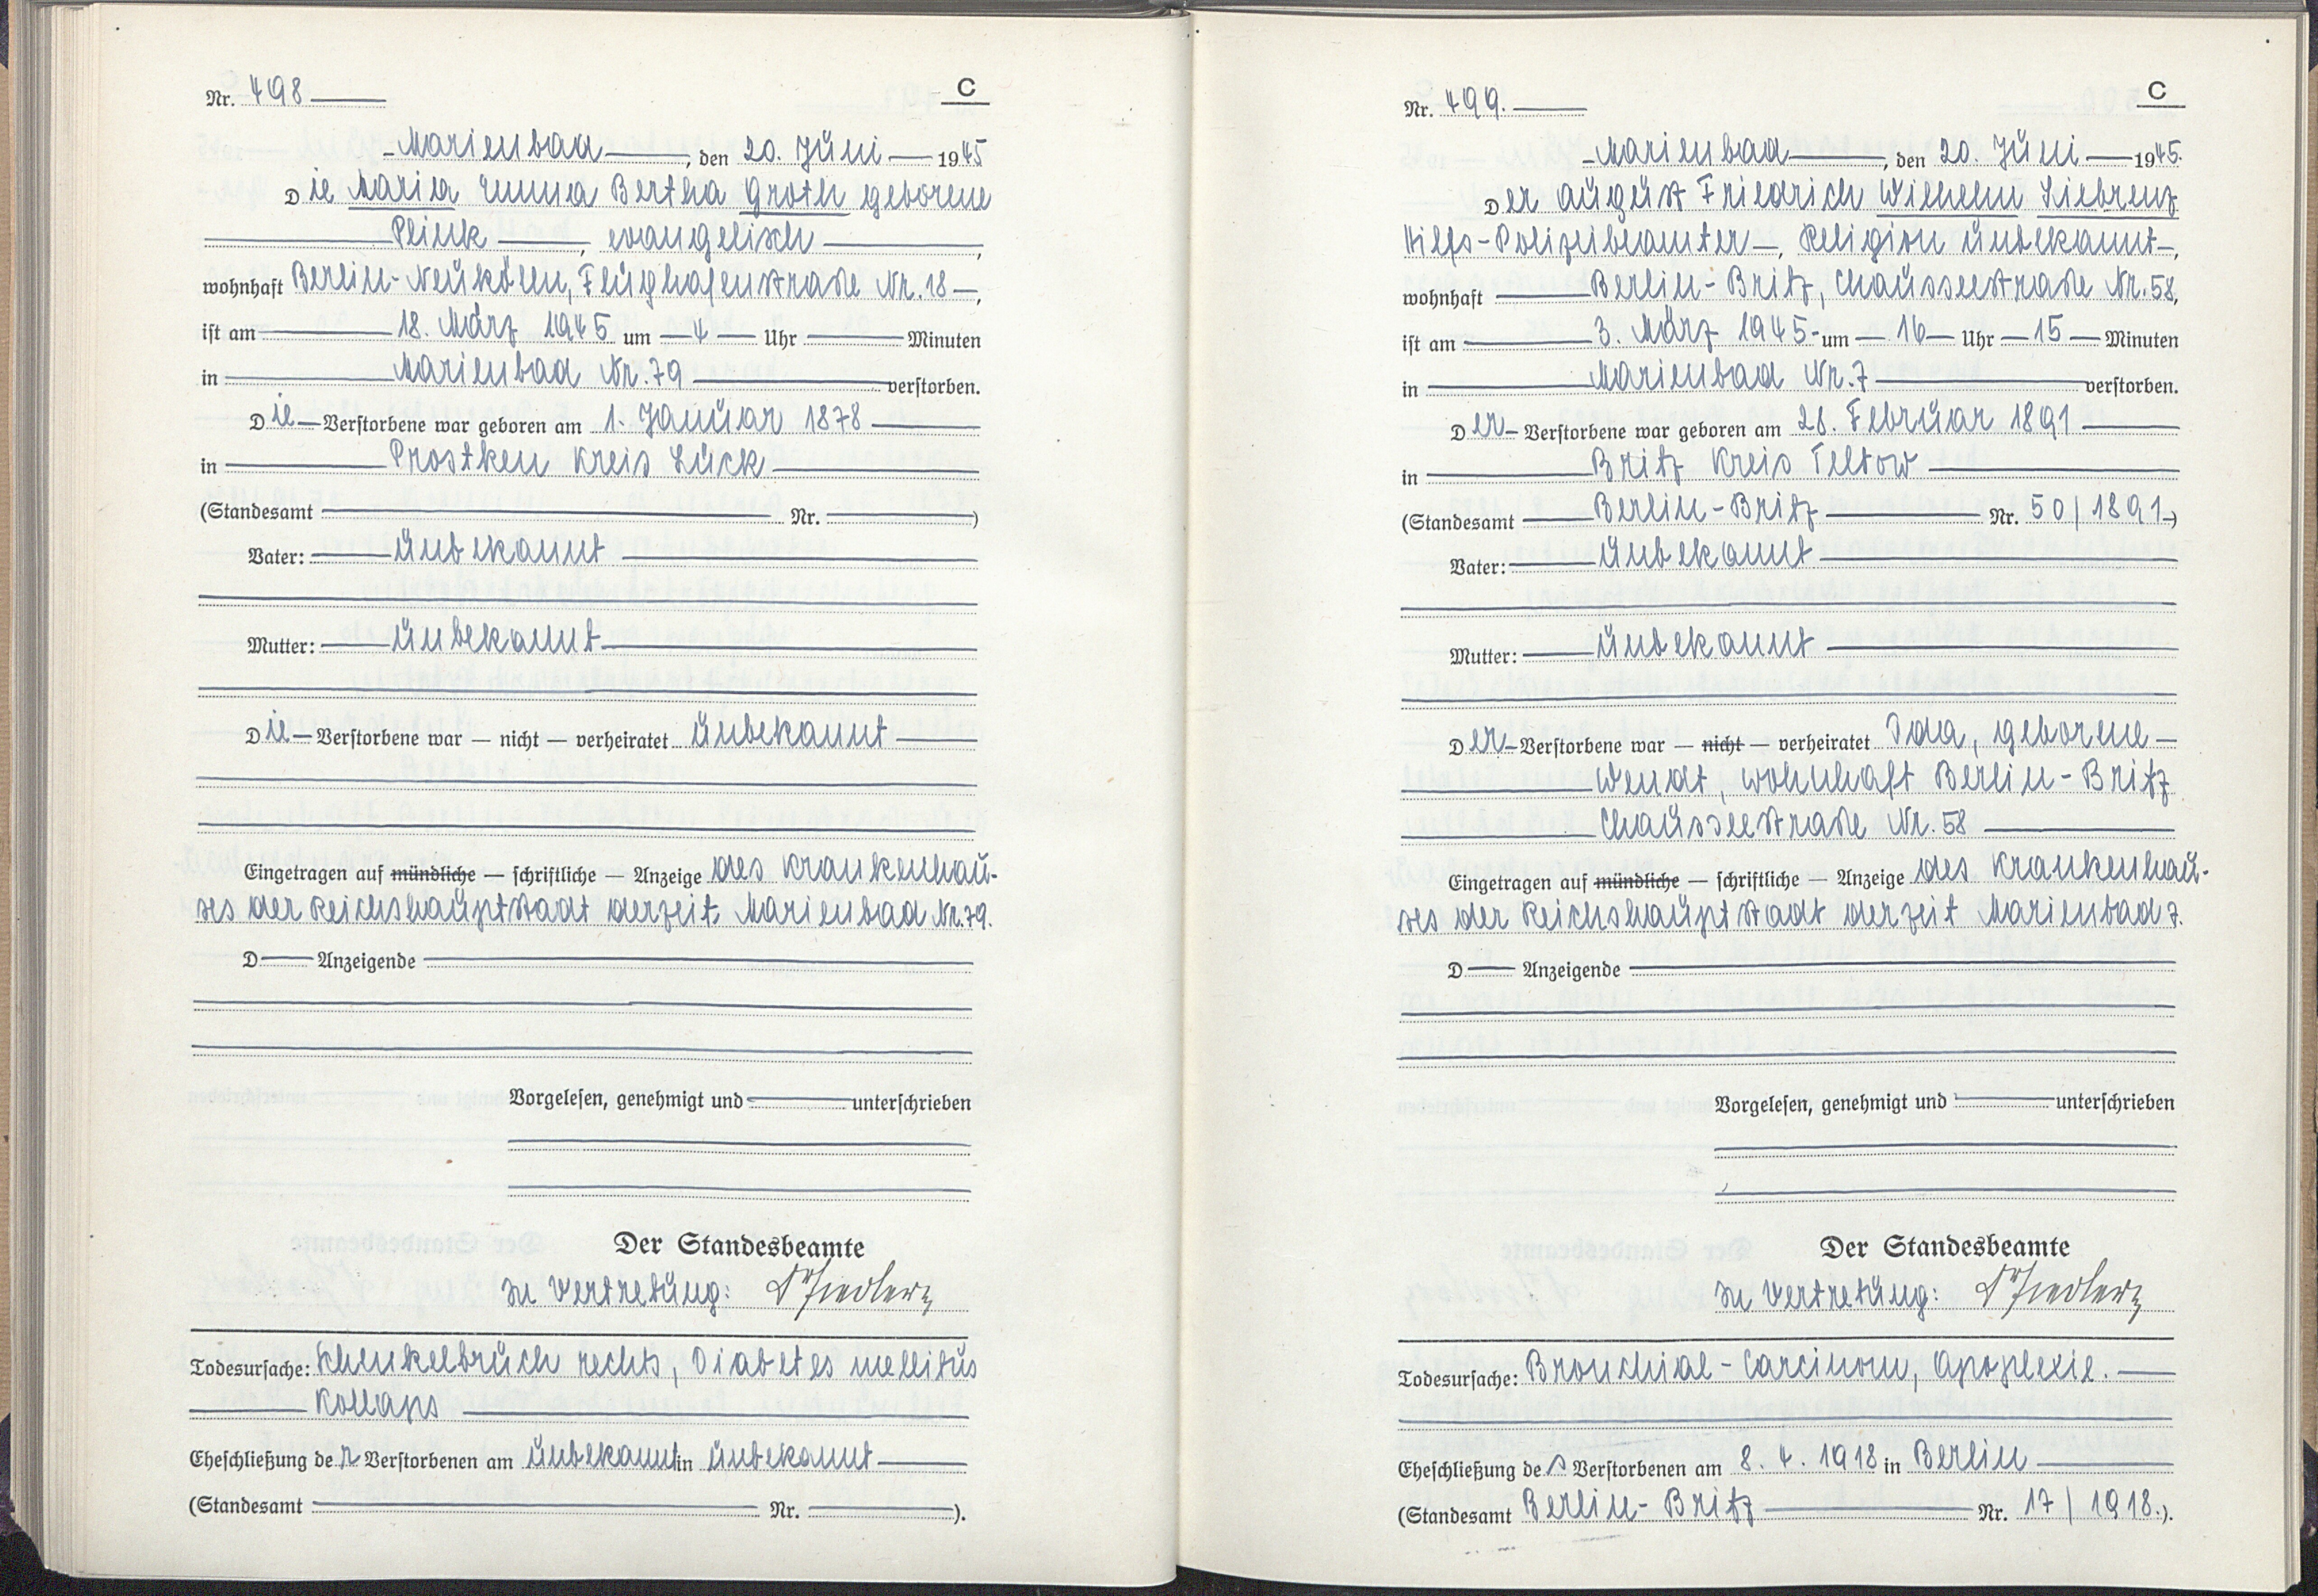 Nr. 498 C
Marienbad, den 20. Juni 1945
Die Maria Emma Bertha Groth geborene
Plink, evangelisch,
wohnhaft Berlin-Neukölln, Flughafenstraße Nr. 18,
ist am 18. März 1945 um 4 Uhr Minuten
in Marienbad Nr. 79 verstorben.
Die Verstorbene war geboren am 1. Januar 1878
in Prostken Kreis Lück
(Standesamt Nr. )
Vater: unbekannt
Mutter: unbekannt
Die Verstorbene war — nicht — verheiratet unbekannt
Eingetragen auf mündliche — schriftliche — Anzeige des Krankenhau-
ses der Reichshauptstadt derzeit Marienbad Nr. 79.
D Anzeigende
Vorgelesen, genehmigt und unterschrieben
Der Standesbeamte
In Vertretung:
Todesursache: Schenkelbruch rechts, Diabetes mellitus
Kollaps
Eheschließung der Verstorbenen am unbekannt in unbekannt
(Standesamt Nr. ).
Nr. 499. C
Marienbad, den 20. Juni 1945.
Der August Friedrich Wilhelm Liebrenz
Hilfs-Polizeibeamter, Religion unbekannt,
wohnhaft Berlin-Britz, Chausseestraße Nr. 58,
ist am 3. März 1945 um 16 Uhr 15 Minuten
in Marienbad Nr. 7 verstorben.
Der Verstorbene war geboren am 28. Februar 1891
in Britz Kreis Teltow
(Standesamt Berlin-Britz Nr. 50/1891)
Vater: unbekannt
Mutter: unbekannt
Der Verstorbene war — nicht — verheiratet Ida, geborene
Wendt, wohnhaft Berlin-Britz
Chausseestraße Nr. 58
Eingetragen auf mündliche — schriftliche — Anzeige des Krankenhau-
ses der Reichshauptstadt derzeit Marienbad 7.
D Anzeigende
Vorgelesen, genehmigt und unterschrieben
Der Standesbeamte
In Vertretung:
Todesursache: Bronchial-Carcinom, Apoplexie.
Eheschließung des Verstorbenen am 8. 4. 1918 in Berlin
(Standesamt Berlin-Britz Nr. 17/1918.).